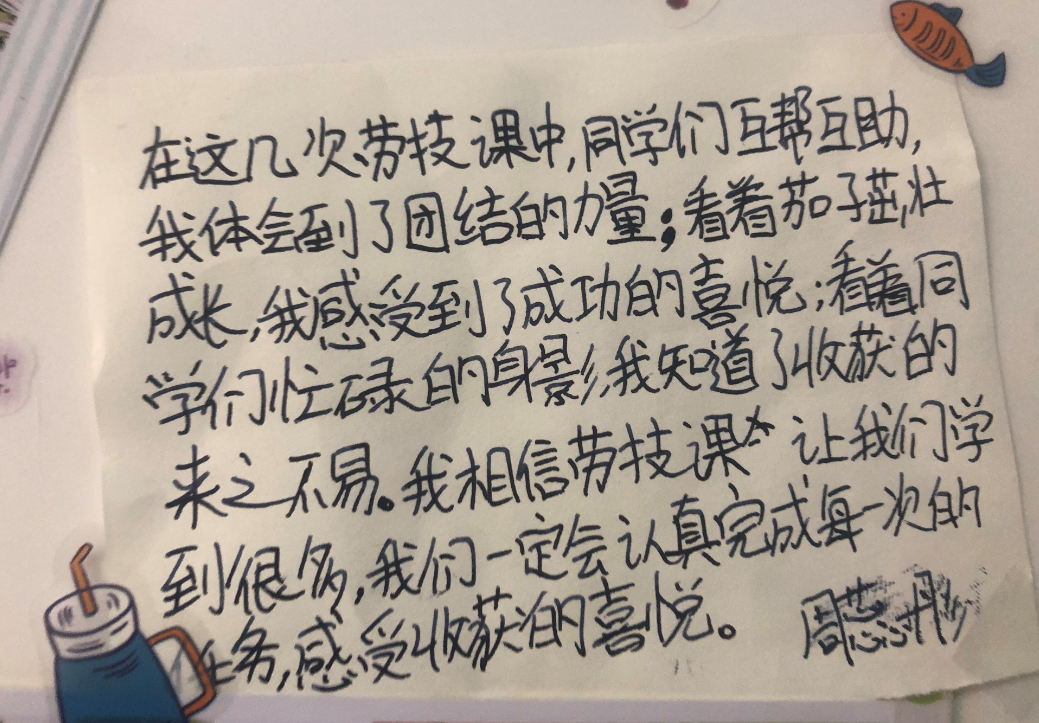 在这几次劳技课中,同学们互帮互助,
我体会到了团结的力量;看着茄子茁壮
成长,我感受到了成功的喜悦;看着同
学们忙碌的身影,我知道了收获的
来之不易。我相信劳技课会让我们学
到很多,我们一定会认真完成每一次的
任务,感受收获的喜悦。 周蕊彤